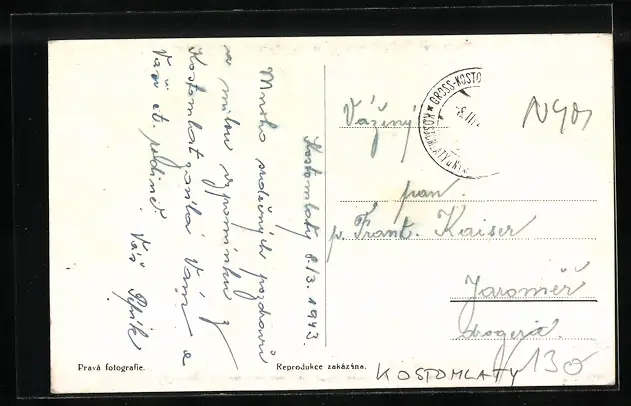 Kostomlaty 8./3. 1943
Mnoho srdečných pozdravů
a milou vzpomínku z
Kostomlat zasílá Vám a
Vaší ct. rodině. Váš Pepík
GROSS-KOSTO
Vážený
pan
p. Frant. Kaiser
Jaroměř
drogerie.
Pravá fotografie.
Reprodukce zakázána.
KOSTOMLATY
130